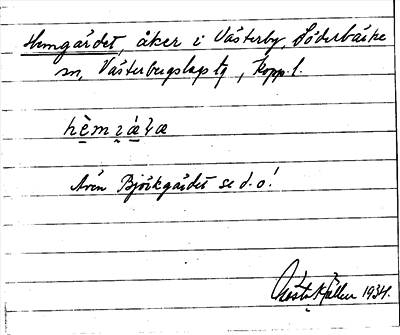 Hemgärdet, åker i Västerby, Söderbärke
sn, Västerbergslags tg, Kopp. l.
hèmɪä̀ɫæ
Även Björkgärdet se d. o!
Gösta Käller 1934.